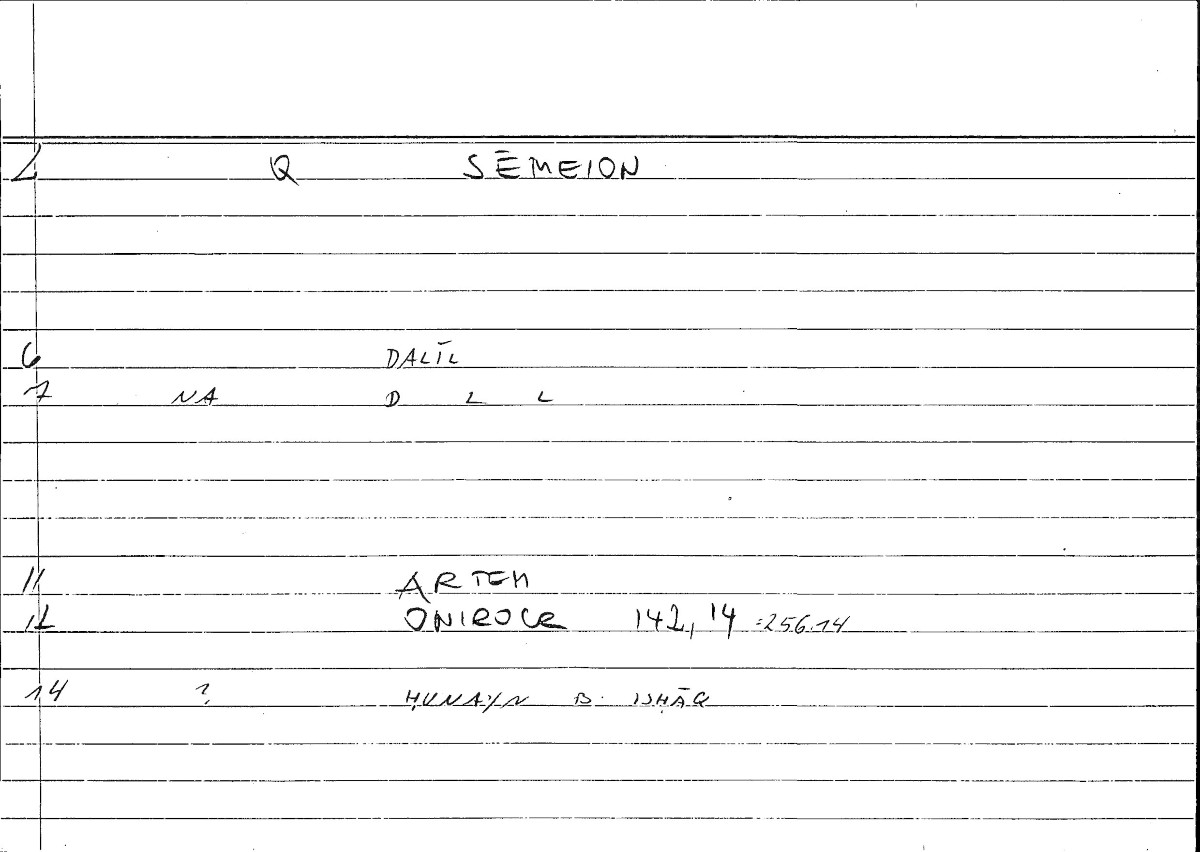 2 Q SĒMEION
6 DALĪL
7 NA D L L
11 ARTEM
12 ONIROCR 142,14 =256.14
14 ? ḤUNAYN B. ISḤĀQ